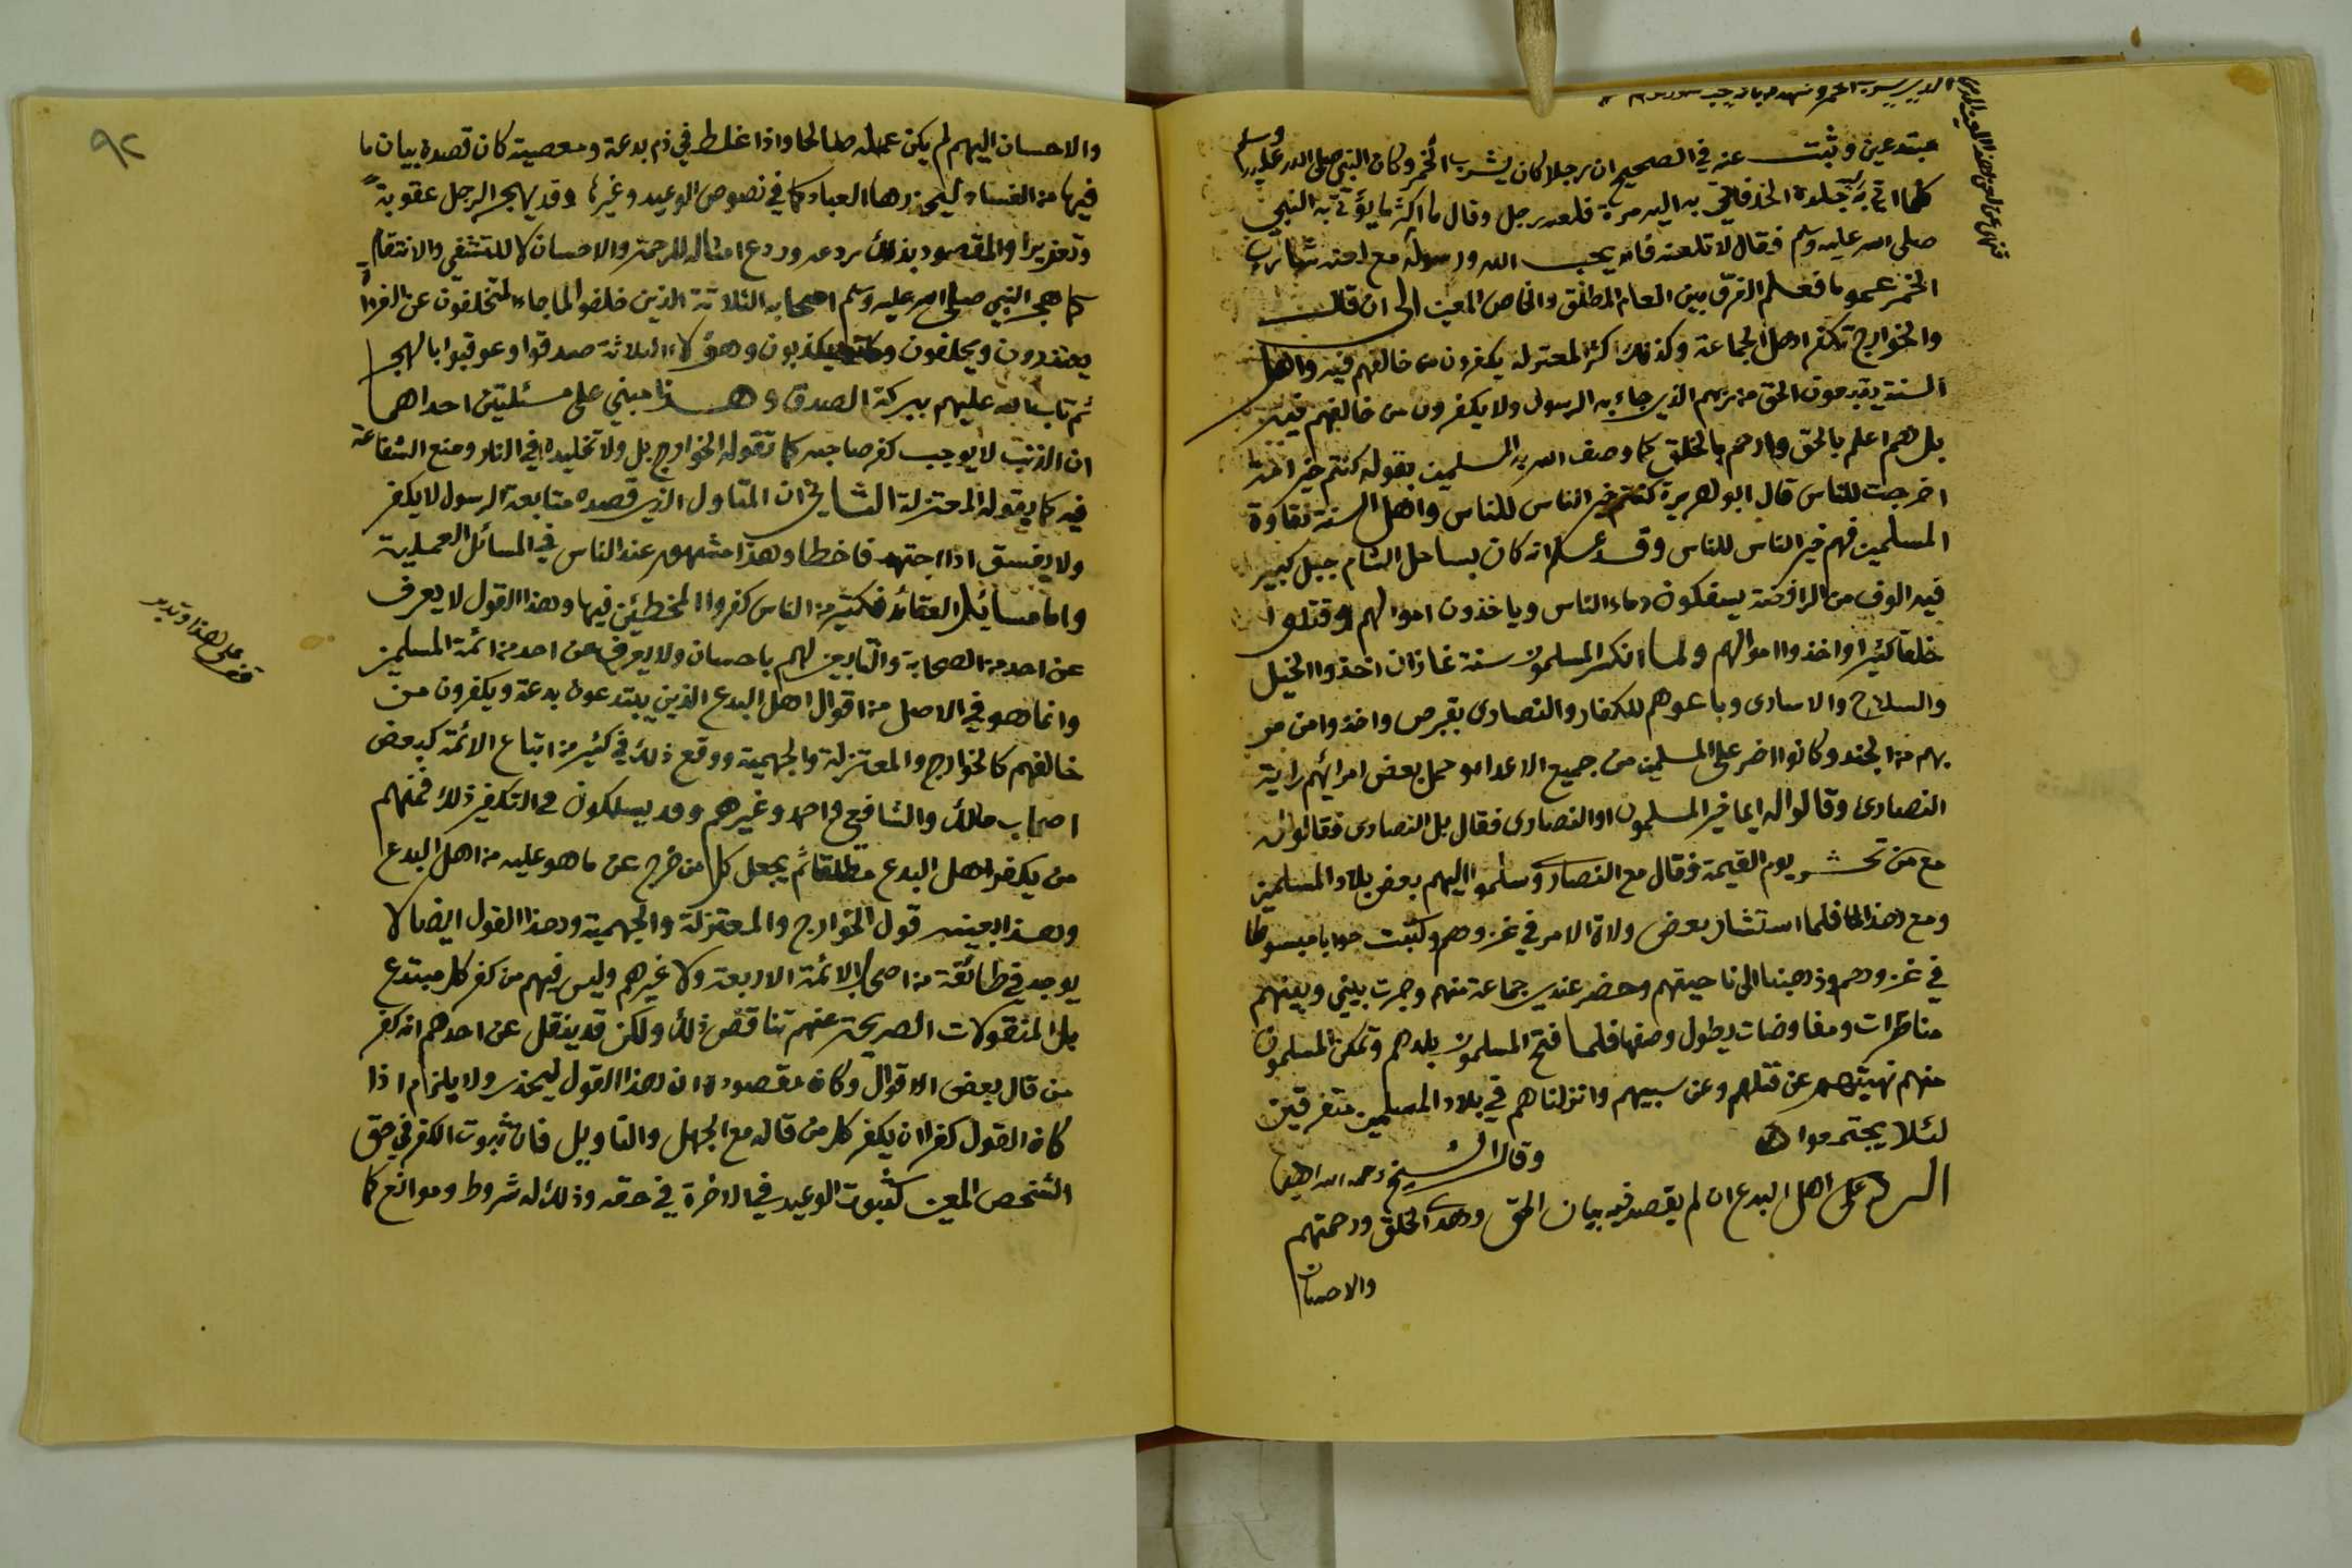 فنهى عن لعن هذا المعين الذي
يشرب الخمر وشهد له بانه يحب
مبتدعين وثبت عنه في الصحيح ان رجلا كان يشرب الخمر وكان النبي صلى الله عليه وسلم
كلما اتي به جلده الحد فاتي به اليه مرة فلعنه رجل وقال ما اكثر ما يؤتى به النبي
صلى الله عليه وسلم فقال لا تلعنه فانه يحب الله ورسوله مع لعنه شارب
الخمر عموما فعلم الفرق بين العام المطلق والخاص المعين الى ان قال
والخوارج تكفر اهل الجماعة وكذلك اكثر المعتزلة يكفرون من خالفهم فيه واهل
السنة يتبعون الحق من ربهم الذي جاء به الرسول ولا يكفرون من خالفهم فيه
بل هم اعلم بالحق وارحم بالخلق كما وصف الله به المسلمين بقوله كنتم خير امة
اخرجت للناس قال ابو هريرة كنتم خير الناس للناس واهل السنة نقاوة
المسلمين فهم خير الناس للناس وقد علم انه كان بساحل الشام جبل كبير
فيه الوف من الرافضة يسفكون دماء الناس وياخذون اموالهم وقتلوا
خلقا كثيرا واخذوا اموالهم ولما انكسر المسلمون سنة غازان اخذوا الخيل
والسلاح والاسارى وباعوهم للكفار والنصارى بقبرص واخذوا من مر
بهم من الجند وكانوا اضر على المسلمين من جميع الاعداء وحمل بعض امرائهم راية
النصارى وقالوا له ايما خير المسلمون او النصارى فقال بل النصارى فقالوا له
مع من تحشر يوم القيمة فقال مع النصارى وسلموا اليهم بعض بلاد المسلمين
ومع هذا فلما استشار بعض ولاة الامر في غزوهم وكتبت جوابا مبسوطا
في غزوهم وذهبنا الى ناحيتهم وحضر عندي جماعة منهم وجرت بيني وبينهم
مناظرات ومفاوضات يطول وصفها فلما فتح المسلمون بلدهم وتمكن المسلمون
منهم نهيتهم عن قتلهم وعن سبيهم وانزلناهم في بلاد المسلمين متفرقين
لئلا يجتمعوا وقال الشيخ رحمه الله ايضا
الرد على اهل البدع ان لم يقصد فيه بيان الحق وهدى الخلق ورحمتهم
والاحسان
٩٢
والاحسان اليهم لم يكن عمله صالحا واذا غلط في ذم بدعة ومعصية كان قصده بيان ما
فيها من الفساد ليحذرها العباد كما في نصوص الوعيد وغيرها وقد يهجر الرجل عقوبة
وتعزيرا والمقصود بذلك ردعه وردع امثاله للرحمة والاحسان لا للتشفي والانتقام
كما هجر النبي صلى الله عليه وسلم اصحابه الثلاثة الذين خلفوا لما جاء المتخلفون عن الغزاة
يعتذرون ويحلفون وكانوا يكذبون وهؤلاء الثلاثة صدقوا وعوقبوا بالهجر
ثم تاب الله عليهم ببركة الصدق وهذا مبني على مسئلتين احداهما
ان الذنب لا يوجب كفر صاحبه كما تقوله الخوارج بل ولا تخليده في النار ومنع الشفاعة
فيه كما يقوله المعتزلة الثاني ان المتاول الذي قصده متابعة الرسول لا يكفر
ولا يفسق اذا اجتهد فاخطا وهذا مشهور عند الناس في المسائل العملية
واما مسائل العقائد فكثير من الناس كفروا المخطئين فيها وهذا القول لا يعرف
عن احد من الصحابة والتابعين لهم باحسان ولا يعرف عن احد من ائمة المسلمين
وانما هو في الاصل من اقوال اهل البدع الذين يبتدعون بدعة ويكفرون من
خالفهم كالخوارج والمعتزلة والجهمية ووقع ذلك في كثير من اتباع الائمة كبعض
اصحاب مالك والشافعي واحمد وغيرهم وقد يسلكون في التكفير ذلك فمنهم
من يكفر اهل البدع مطلقا ثم يجعل كل من خرج عن ما هو عليه من اهل البدع
وهذا بعينه قول الخوارج والمعتزلة والجهمية وهذا القول ايضا لا
يوجد في طائفة من اصحاب الائمة الاربعة ولا غيرهم وليس فيهم من كفر كل مبتدع
بل المنقولات الصريحة عنهم تناقض ذلك ولكن قد ينقل عن احدهم انه كفر
من قال بعض الاقوال وكان مقصوده ان هذا القول ليحذر ولا يلزم اذا
كان القول كفرا ان يكفر كل من قاله مع الجهل والتاويل فان ثبوت الكفر في حق
الشخص المعين كثبوت الوعيد في الاخرة في حقه وذلك له شروط وموانع كما
قف على هذا وتدبر